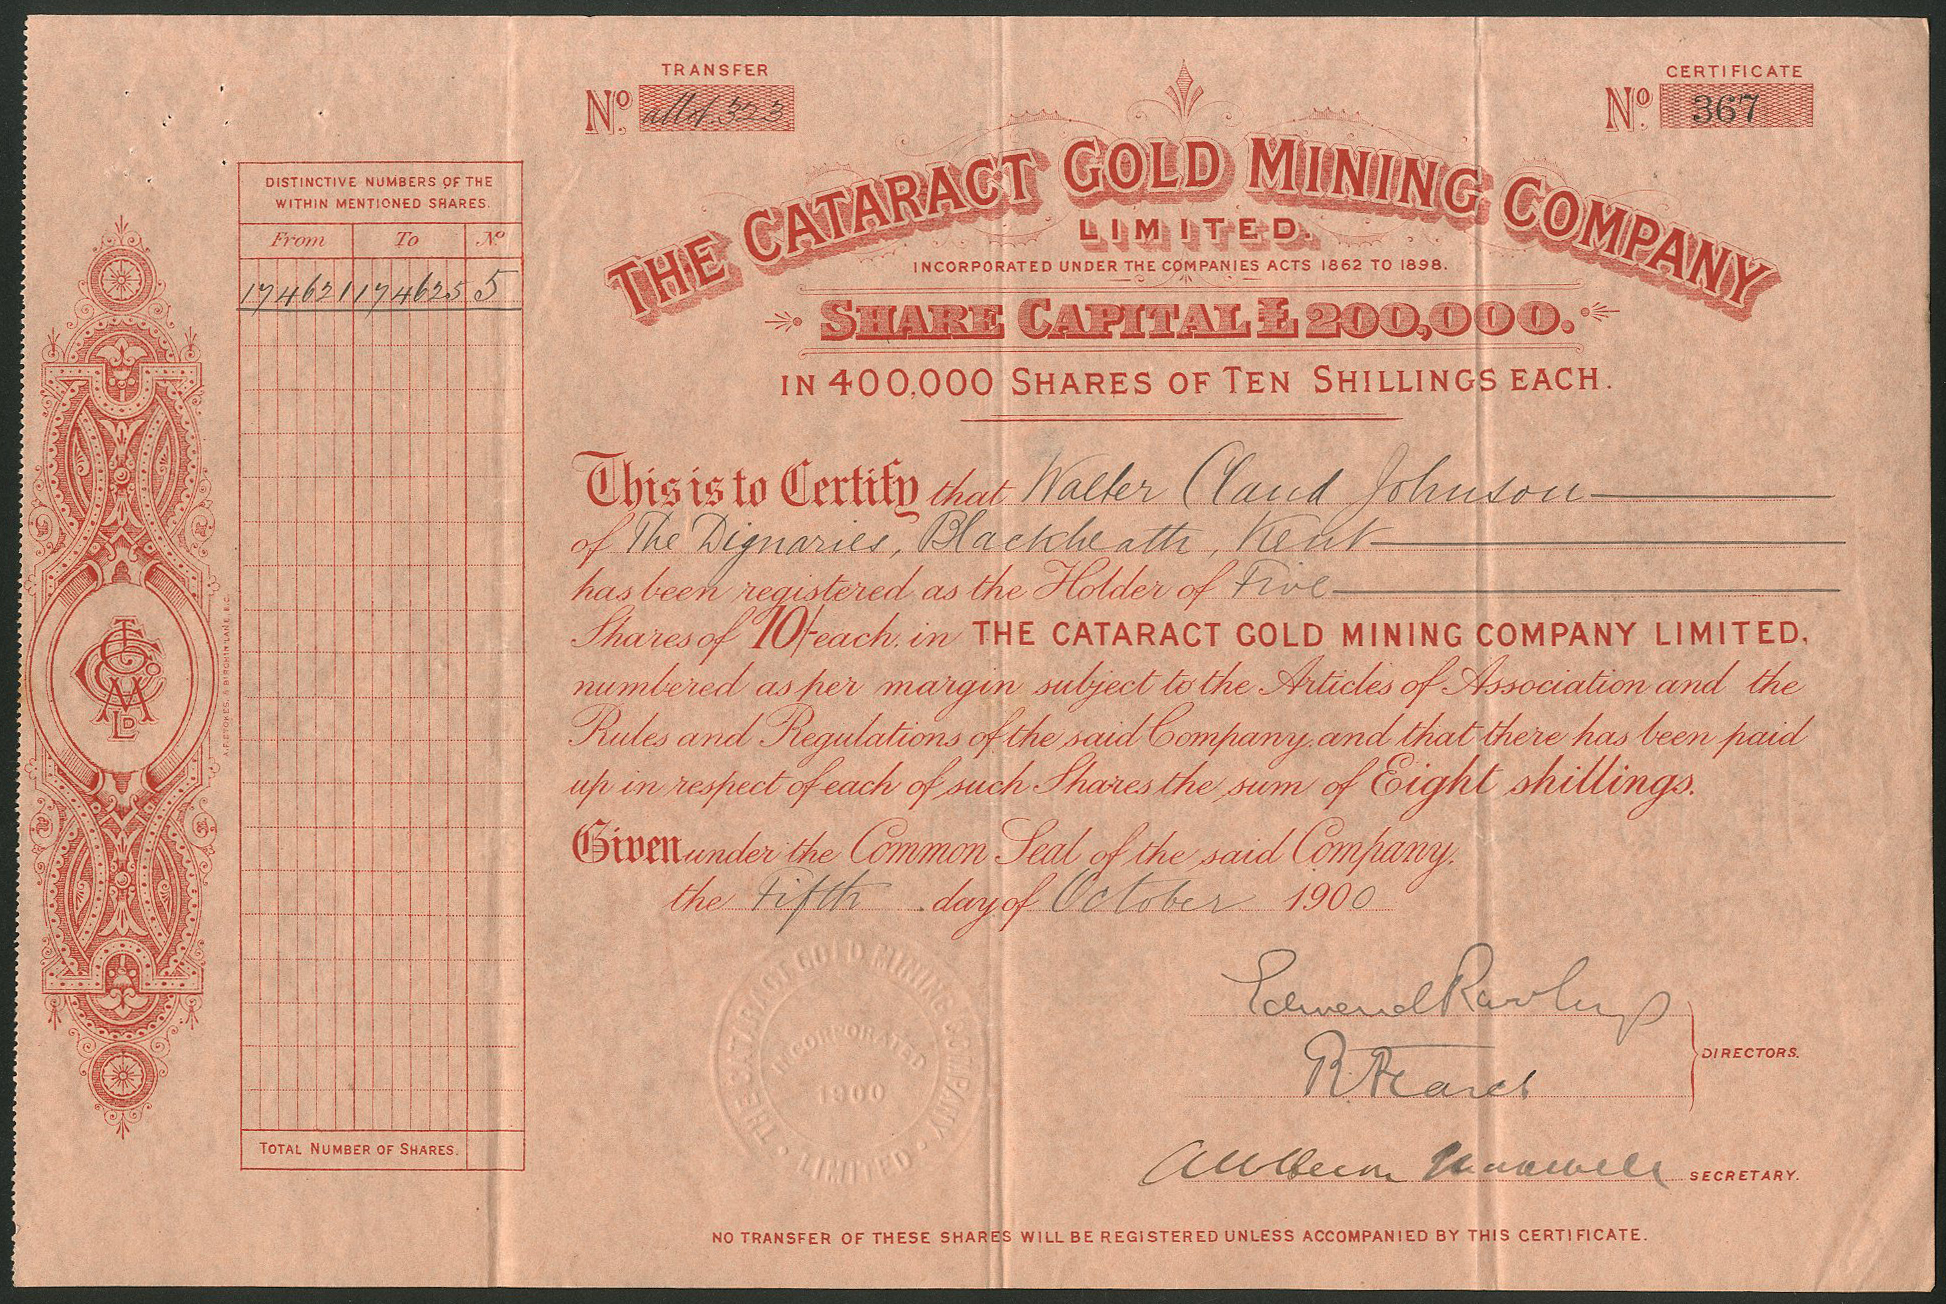 TRANSFER
No. allot 323
CERTIFICATE
No. 367
THE CATARACT GOLD MINING COMPANY
LIMITED.
INCORPORATED UNDER THE COMPANIES ACTS 1862 TO 1898.
SHARE CAPITAL £200,000.
IN 400,000 SHARES OF TEN SHILLINGS EACH.
DISTINCTIVE NUMBERS OF THE
WITHIN MENTIONED SHARES.
From To No
174621 174625 5
TOTAL NUMBER OF SHARES.
A.F. STOKES, 8 BIRCHIN LANE E.C.
This is to Certify that Walter Claud Johnson
of The Dignaries, Blackheath, Kent
has been registered as the Holder of Five
Shares of 10/- each, in THE CATARACT GOLD MINING COMPANY LIMITED,
numbered as per margin subject to the Articles of Association and the
Rules and Regulations of the said Company, and that there has been paid
up in respect of each of such Shares the sum of Eight shillings.
Given under the Common Seal of the said Company,
the Fifth day of October 1900
THE CATARACT GOLD MINING COMPANY
LIMITED
INCORPORATED
1900
Edmund
DIRECTORS.
SECRETARY.
NO TRANSFER OF THESE SHARES WILL BE REGISTERED UNLESS ACCOMPANIED BY THIS CERTIFICATE.